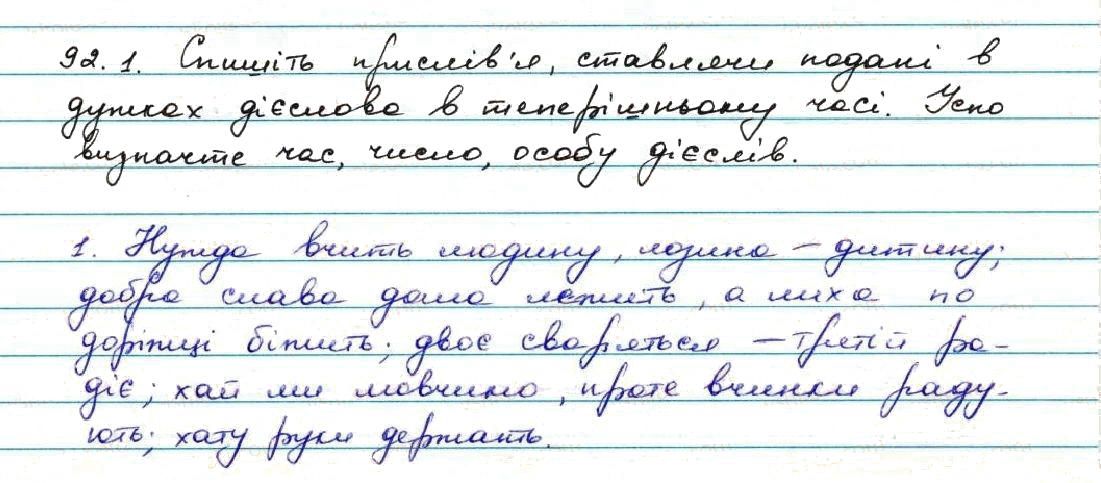 92. 1. Спишіть прислів'я, ставлячи подані в
дужках дієслова в теперішньому часі. Усно
визначте час, число, особу дієслів.
1. Нужда вчить людину, лозина – дитину;
добра слава дома лежить, а лиха по
доріжці біжить; двоє сваряться – третій ра-
діє; хай ми мовчимо, проте вчинки раду-
ють; хату руки держать.